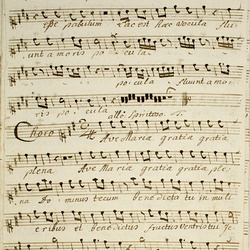 spe pabulum Lac est hoc a pocula flu
unt amoris pocula.
pocula fluunt amo
ris pocula. allo Spiritoso
Choro Ave Maria gratia gratia
plena Ave Maria gratia ple
na Dominus tecum benedicta tu in muli
eribus et benedictus fructus ventris tui